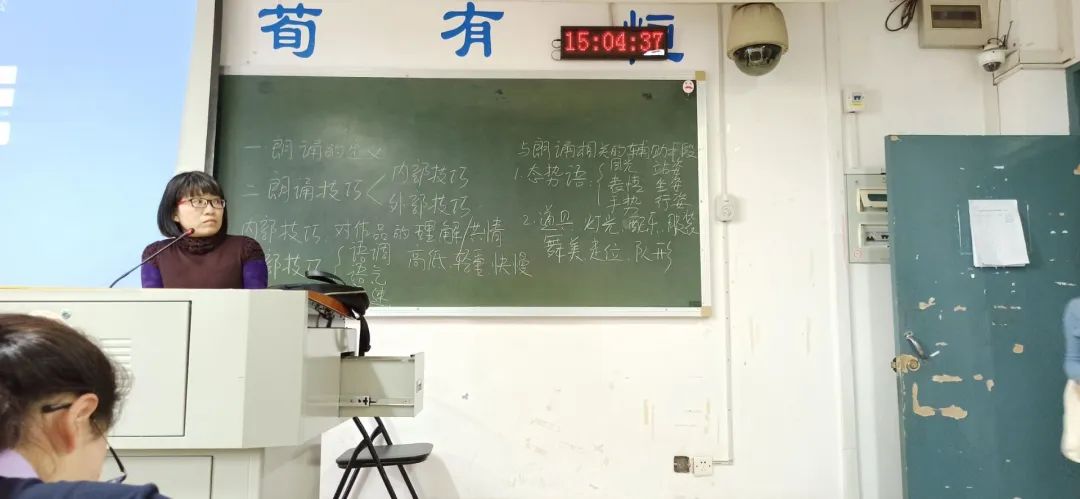 荀有恒
15:04:37
一 朗诵的定义
二 朗诵技巧
内部技巧
外部技巧
内部技巧:对作品的理解/共情
部技巧
语调
语气
语速
高低、轻重、快慢
与朗诵相关的辅助手段
1.态势语:
目光 站姿
表情 坐姿
手势 行姿
2.道具 灯光、配乐、服装
舞美、走位、队形